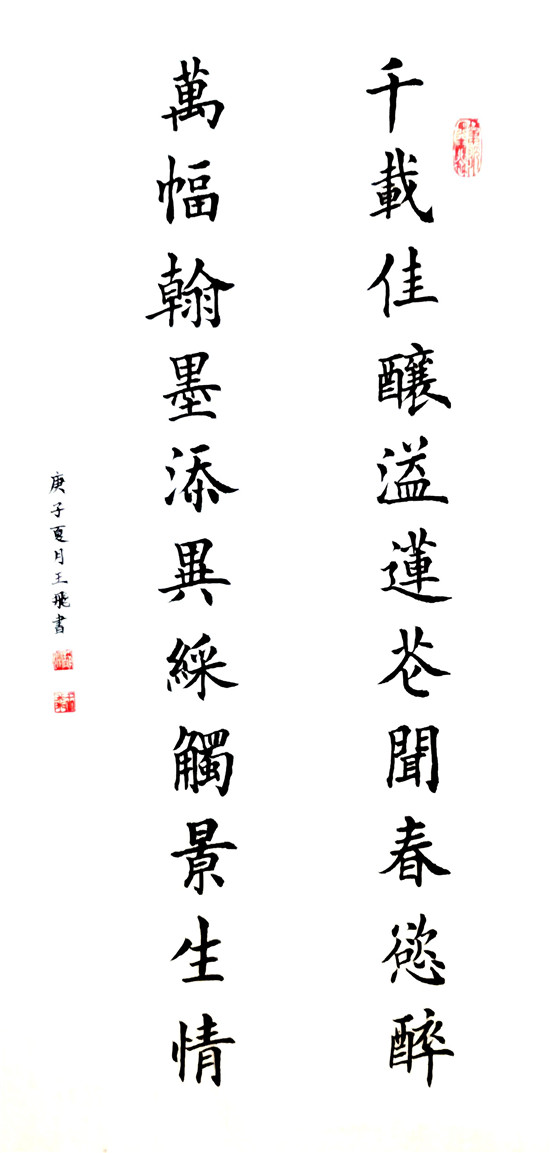 千載佳釀溢蓮芲聞春慾醉
萬幅翰墨添異綵觸景生情
庚子夏月王飛書